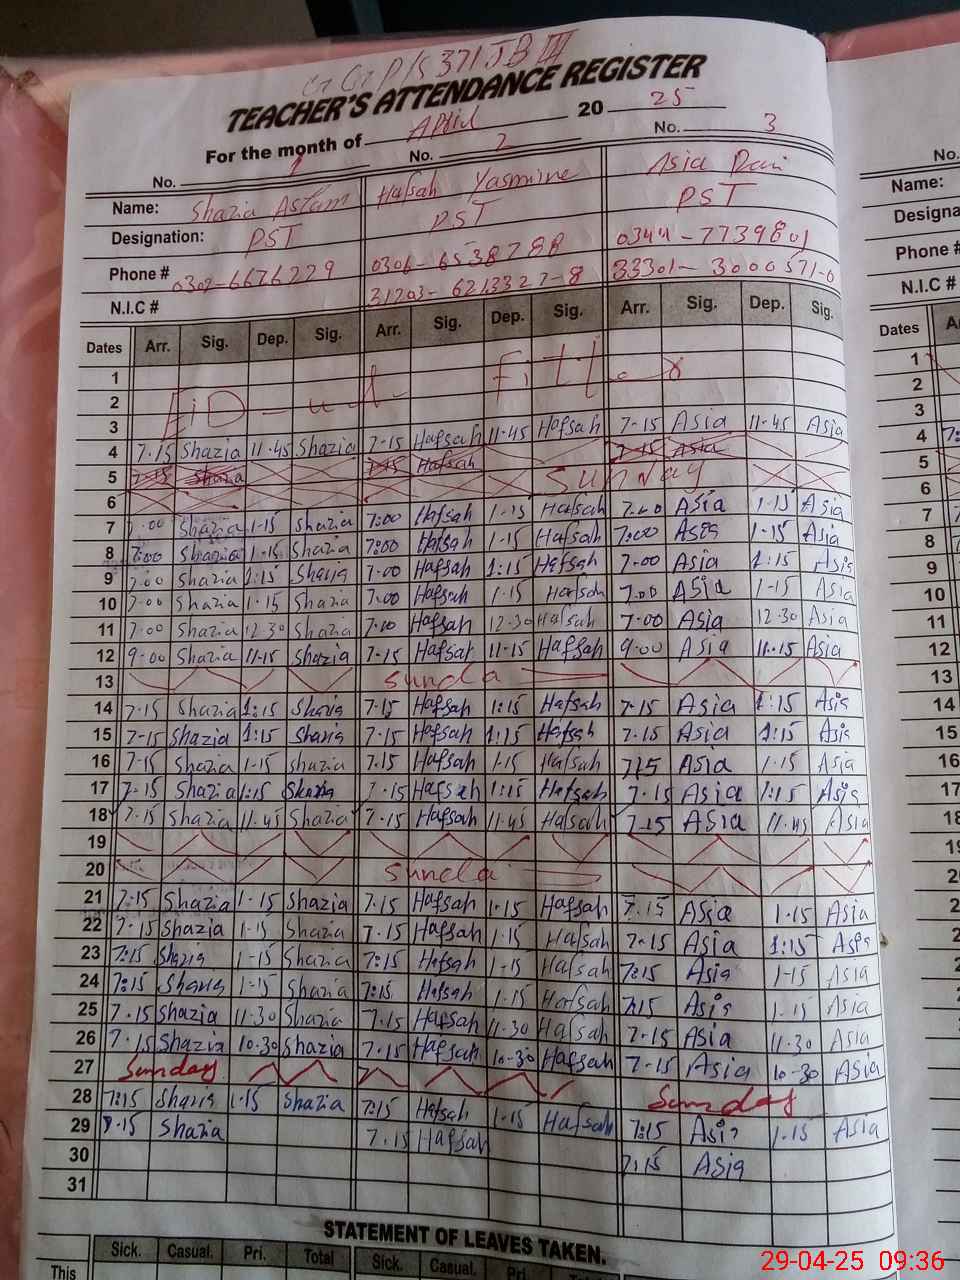 G G P/S 371 JB III
TEACHER'S ATTENDANCE REGISTER
For the month of April 2025
No. 1 No. 2 No. 3
Name: Shazia Aslam Hafsah Yasmine Asia
Designation: PST PST PST
Phone # 0307-6676229 0306-6538788 0344-7739801
N.I.C # 31203-6213327-8 33301-3000571-0
Dates Arr. Sig. Dep. Sig. Arr. Sig. Dep. Sig. Arr. Sig. Dep. Sig.
1
2 EiD-ul-Fitl
3
4 7.15 Shazia 11.45 Shazia 7-15 Hafsah 11-45 Hafsah 7-15 Asia 11-45 Asia
5 7.15 Shazia 7.15 Hafsah 7.15 Asia
6 Sunday
7 7.00 Shazia 1-15 Shazia 7:00 Hafsah 1-15 Hafsah 7.00 Asia 1-15 Asia
8 7:00 Shazia 1.15 Shazia 7:00 Hafsah 1-15 Hafsah 7:00 Asia 1.15 Asia
9 7.00 Shazia 1:15 Shazia 7.00 Hafsah 1:15 Hafsah 7.00 Asia 1:15 Asia
10 7.00 Shazia 1.15 Shazia 7.00 Hafsah 1.15 Hafsah 7.00 Asia 1-15 Asia
11 7:00 Shazia 12.30 Shazia 7.00 Hafsah 12.30 Hafsah 7-00 Asia 12.30 Asia
12 9.00 Shazia 11.15 Shazia 7.15 Hafsah 11-15 Hafsah 9.00 Asia 11.15 Asia
13 Sunda
14 7.15 Shazia 1:15 Shazia 7-15 Hafsah 1:15 Hafsah 7-15 Asia 1:15 Asia
15 7-15 Shazia 1:15 Shazia 7.15 Hafsah 1:15 Hafsah 7.15 Asia 1:15 Asia
16 7-15 Shazia 1-15 Shazia 7.15 Hafsah 1-15 Hafsah 7.15 Asia 1.15 Asia
17 7.15 Shazia 1:15 Shazia 7.15 Hafsah 1:15 Hafsah 7.15 Asia 1:15 Asia
18 7.15 Shazia 11.45 Shazia 7.15 Hafsah 11.45 Hafsah 7.15 Asia 11.45 Asia
19
20 Sunda
21 7:15 Shazia 1-15 Shazia 7.15 Hafsah 1.15 Hafsah 7.15 Asia 1.15 Asia
22 7.15 Shazia 1-15 Shazia 7.15 Hafsah 1-15 Hafsah 7-15 Asia 1:15 Asia
23 7:15 Shazia 1-15 Shazia 7:15 Hafsah 1-15 Hafsah 7:15 Asia 1-15 Asia
24 7:15 Shazia 1:15 Shazia 7:15 Hafsah 1.15 Hafsah 7:15 Asia 1-15 Asia
25 7.15 Shazia 11-30 Shazia 7.15 Hafsah 11-30 Hafsah 7-15 Asia 11.30 Asia
26 7.15 Shazia 10-30 Shazia 7.15 Hafsah 10-30 Hafsah 7-15 Asia 10-30 Asia
27 Sunday Sunday
28 7:15 Shazia 1.15 Shazia 7:15 Hafsah 1.15 Hafsah 7:15 Asia 1.15 Asia
29 7.15 Shazia 7.15 Hafsah 7.15 Asia
30
31
STATEMENT OF LEAVES TAKEN.
Sick. Casual. Pri. Total Sick. Casual. Pri. Total
This
No.
Name:
Designa
Phone #
N.I.C #
Dates
1
2
3
4
5
6
7
8
9
10
11
12
13
14
15
16
17
18
29-04-25 09:36